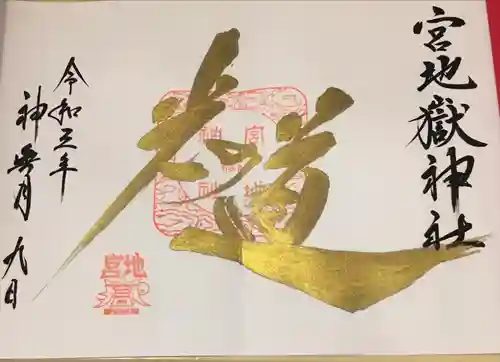 宮地嶽神社
光の道
令和三年
神無月 九日